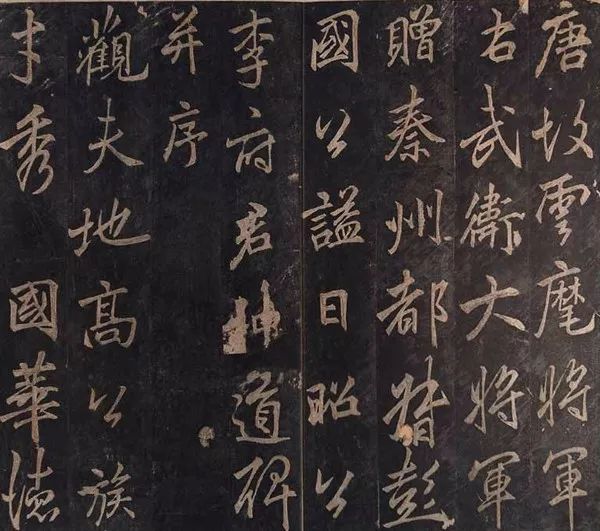 唐故雲麾將軍
右武衛大將軍
贈秦州都督彭
國公謚曰昭公
李府君神道碑
并序
觀夫地高公族
才秀國華德